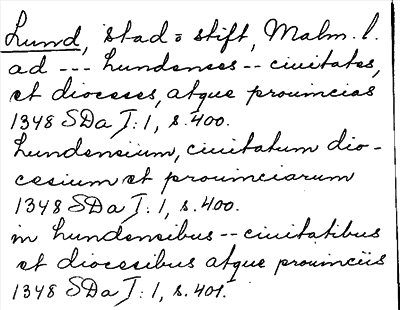 Lund, stad = stift, Malm. l.
ad --- Lundenses -- ciuitates,
et dioceses, atque prouincias
1348 SDa I: 1, s. 400.
Lundensium, ciuitatum dio-
cesium et prouinciarum
1348 SDa I: 1, s. 400.
in Lundensibus -- ciuitatibus
et diocesibus atque prouinciis
1348 SDa I: 1, s. 401.